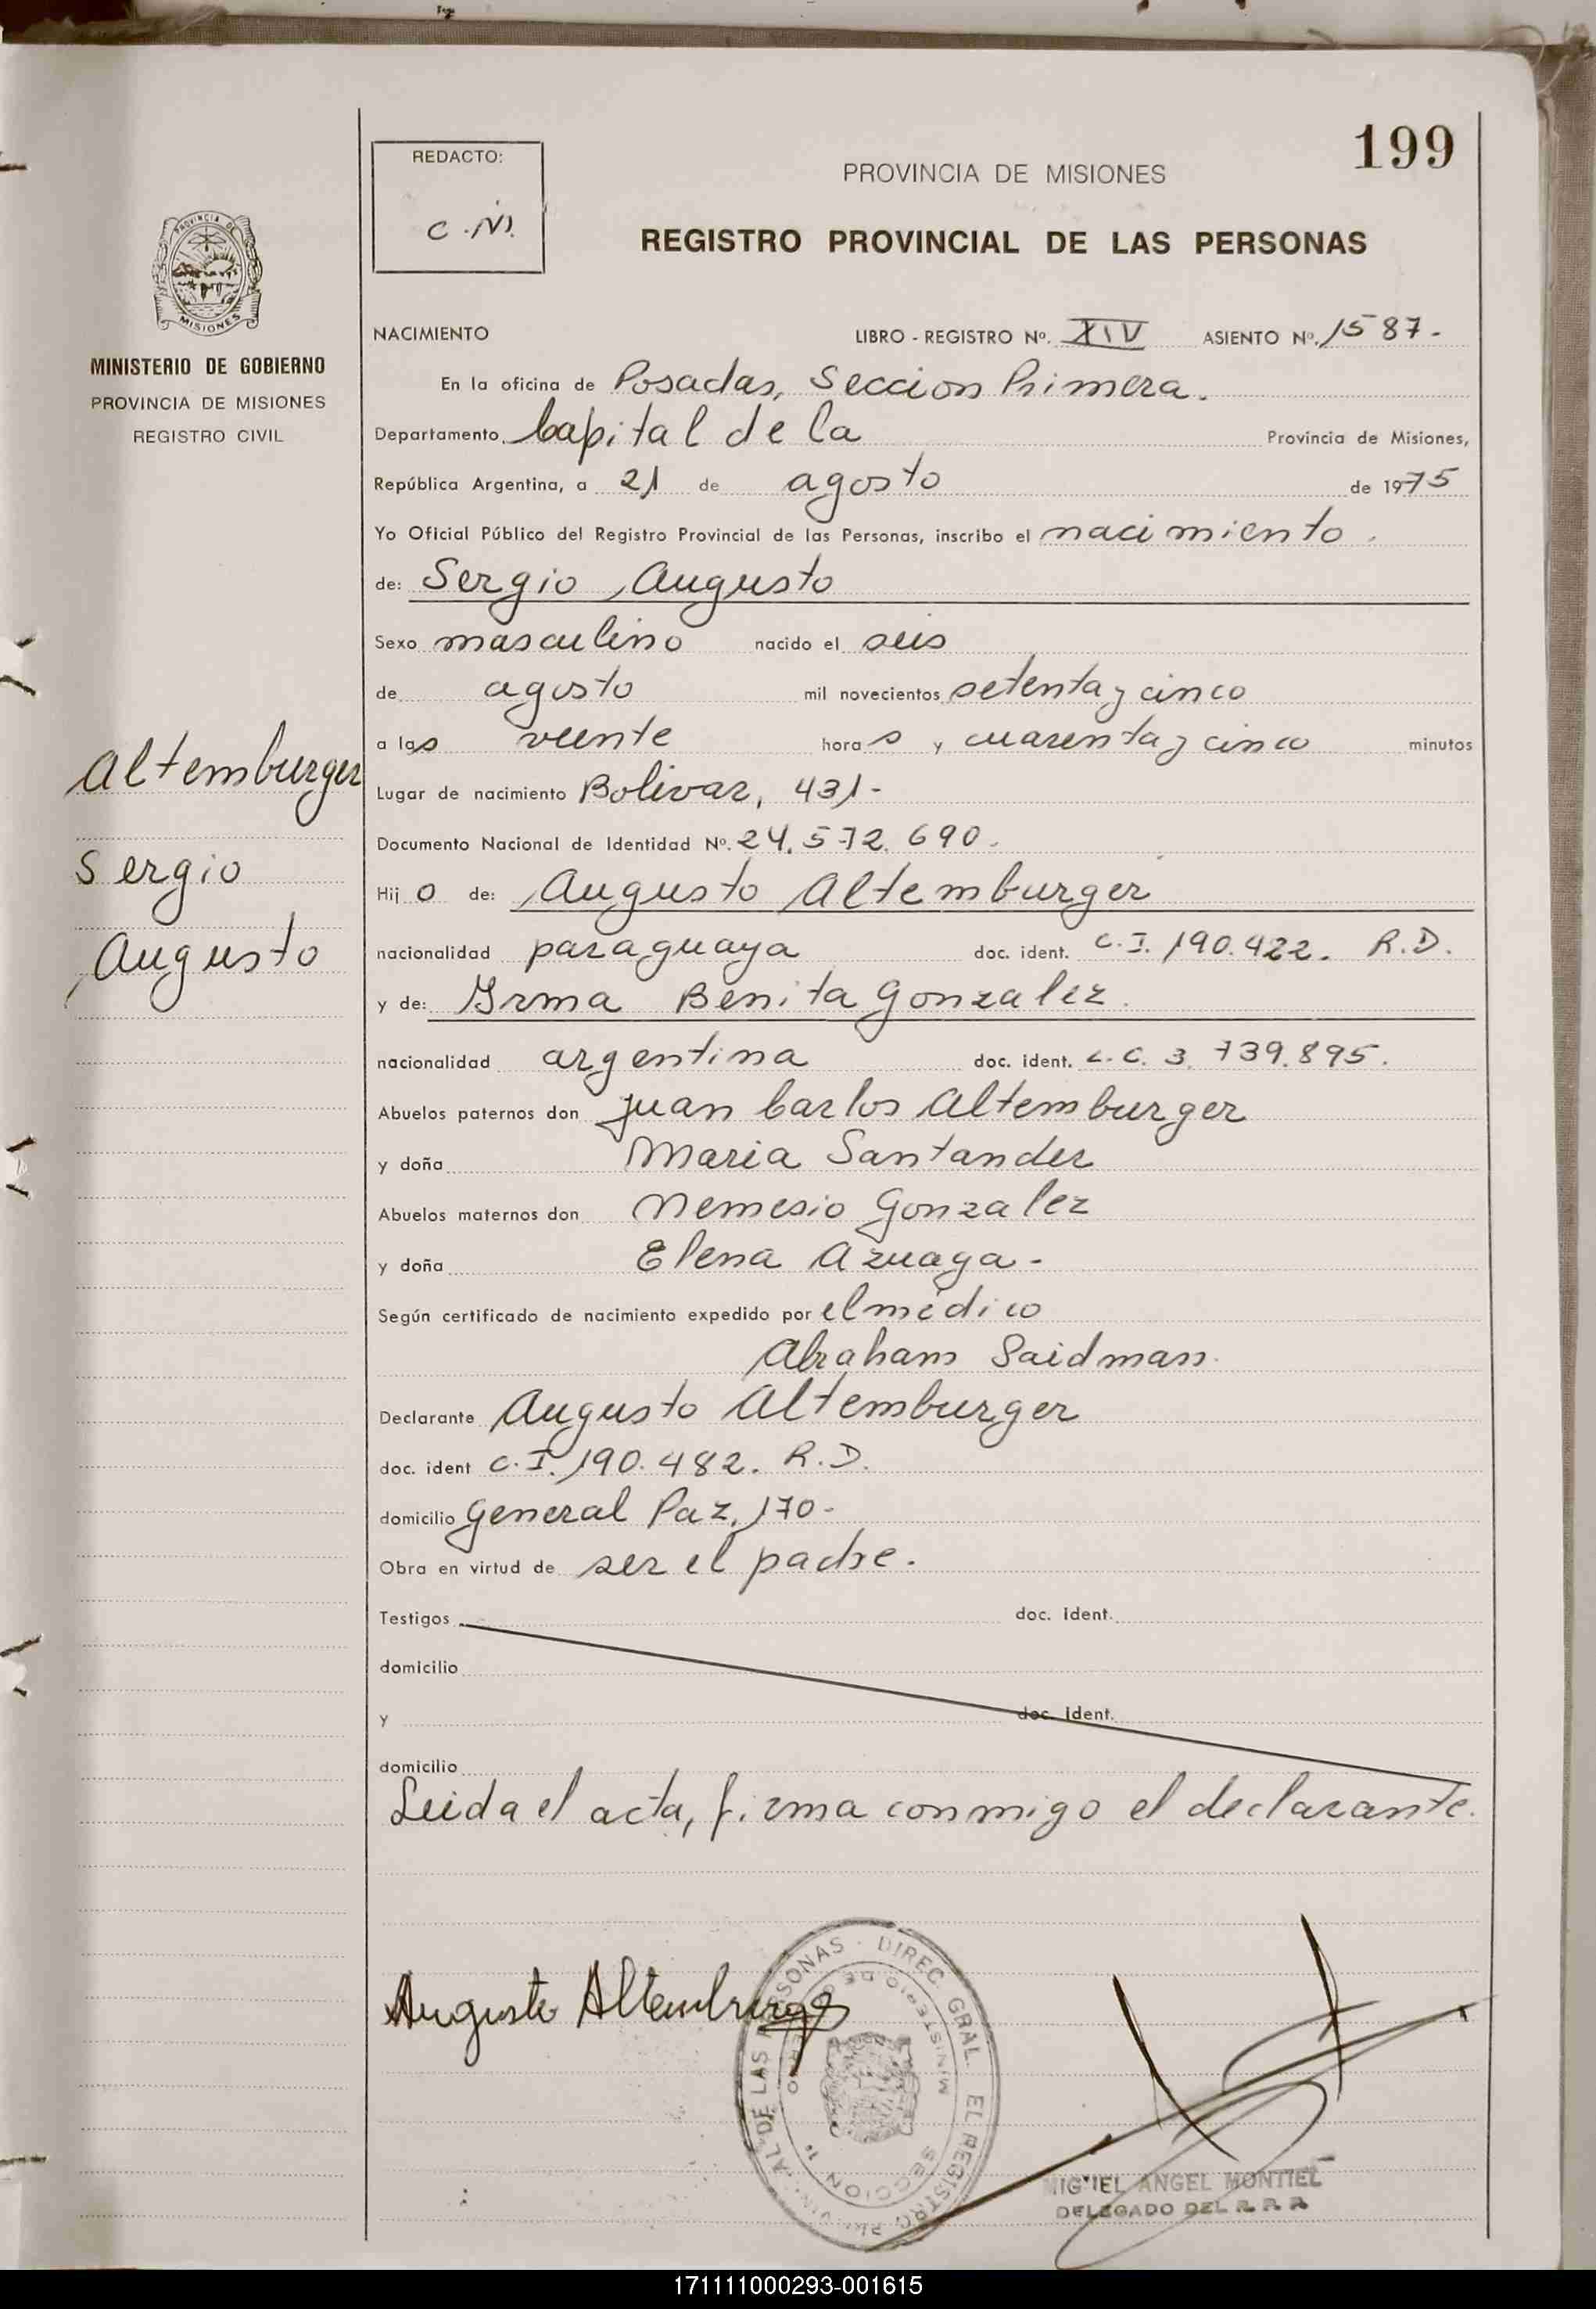 199
REDACTO:
C.M.
PROVINCIA DE MISIONES
REGISTRO PROVINCIAL DE LAS PERSONAS
PROVINCIA DE
MISIONES
MINISTERIO DE GOBIERNO
PROVINCIA DE MISIONES
REGISTRO CIVIL
Altemburger
Sergio
Augusto
NACIMIENTO LIBRO - REGISTRO Nº. XIV ASIENTO Nº. 1587.-
En la oficina de Posadas, Seccion Primera.
Departamento Capital de la Provincia de Misiones,
República Argentina, a 21 de agosto de 1975
Yo Oficial Público del Registro Provincial de las Personas, inscribo el nacimiento.
de: Sergio Augusto
Sexo masculino nacido el seis
de agosto mil novecientos setenta y cinco
a las veinte horas y cuarenta y cinco minutos
Lugar de nacimiento Bolivar, 431-
Documento Nacional de Identidad Nº. 24.572.690.
Hijo de: Augusto Altemburger
nacionalidad paraguaya doc. ident. C.I. 190.422. R.D.
y de: Irma Benita Gonzalez.
nacionalidad argentina doc. ident. L.C. 3.739.895.
Abuelos paternos don Juan Carlos Altemburger
y doña Maria Santander
Abuelos maternos don Nemesio Gonzalez
y doña Elena Azuaga-
Según certificado de nacimiento expedido por el médico
Abraham Saidman.
Declarante Augusto Altemburger
doc. ident C.I. 190.482. R.D.
domicilio General Paz, 170-
Obra en virtud de ser el padre.
Testigos doc. ident.
domicilio
y doc. ident.
domicilio
Leida el acta, firma conmigo el declarante.
Augusto Altemburger
DIREC. GRAL. EL REGISTRO
DE LAS PERSONAS
MINISTERIO DE
SECCION 1ª
MIGUEL ANGEL MONTIEL
DELEGADO DEL R. P. P.
171111000293-001615